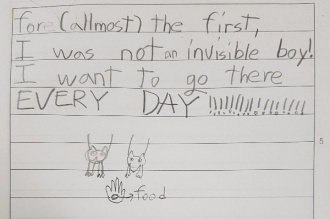 fore (allmost) the first,
I was not an invisible boy!
I want to go there
EVERY DAY !!!!!!!!!!!!!!!!!!
food
5